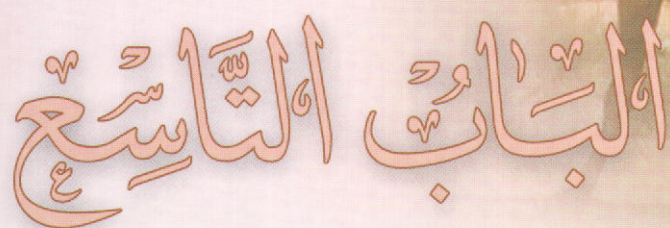 البَابُ التَّاسِعُ